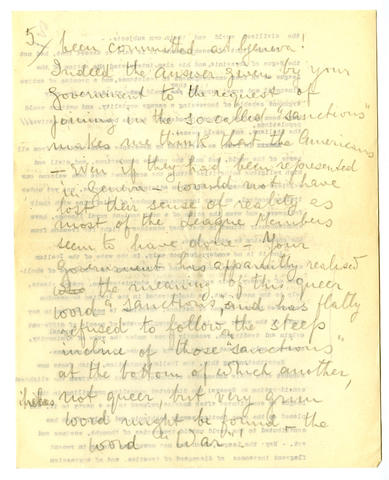 5/ been committed at Geneva!
Indeed the answer given by your
Government to the request of
joining in the so called "sanctions"
makes me think that the Americans
- even if they had been represented
in Geneva - would not have
lost their sense of reality as
most of the League Members
seem to have done - Your
Government has apparently realised
the meaning of this queer
word "sanctions", and has flatly
refused to follow the steep
incline of those "sanctions"
at the bottom of which another,
not queer, but very grim
word might be found - the
word "War"!